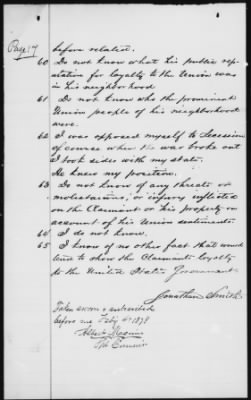 Page 17
before related.
60 Do not know what his public rep-
utation for loyalty to the Union was
in his neighborhood
61 Do not know who the prominent
Union people of his neighborhood
were.
62 I was opposed myself to Secession
of course when the war broke out
I took sides with my state.
He knew my position.
63 Do not know of any threats or
molestations, or injury inflicted
on the Claimant or his property on
account of his Union sentiments
64 I do not know.
65 I know of no other fact that would
tend to show the Claimants loyalty
to the United States Government
Jonathan Smith
Taken sworn & subscribed
before me Feby 4th 1878
Albert